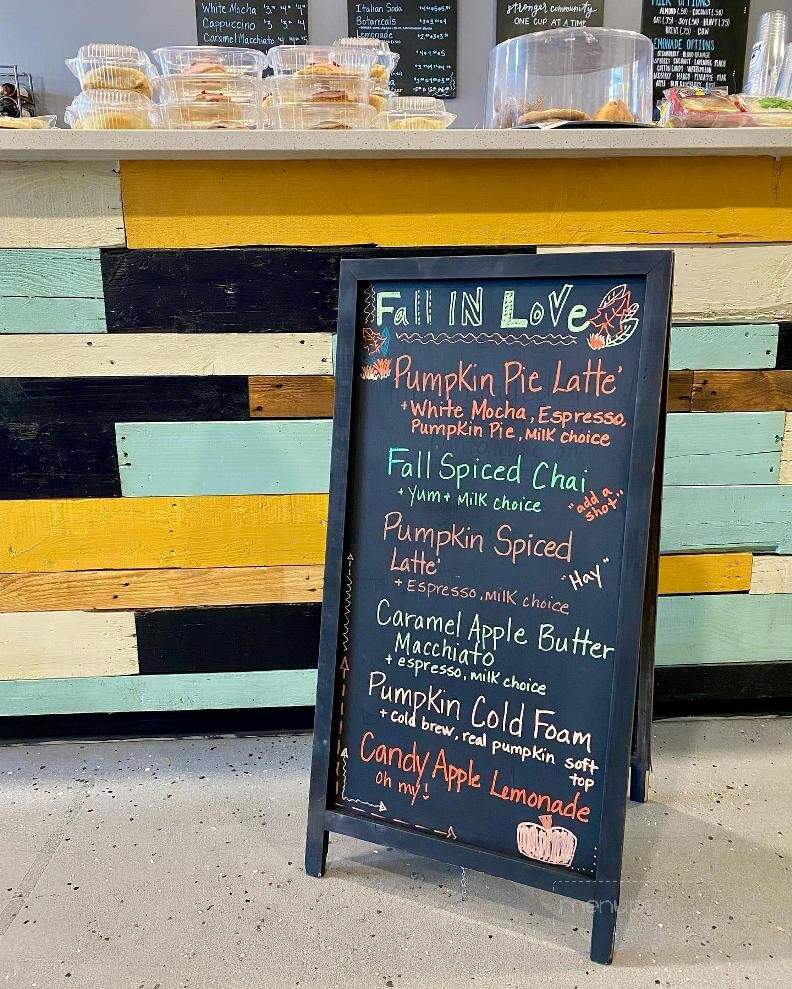 White Mocha
Cappuccino
Caramel Macchiato
Italian Soda
Botanicals
Lemonade
stronger community
ONE CUP AT A TIME
MILK OPTIONS
LEMONADE OPTIONS
Fall IN LoVe
Pumpkin Pie Latte'
+ White Mocha, Espresso,
Pumpkin Pie, Milk choice
Fall Spiced Chai
+ Yum + Milk choice
"add a
shot"
Pumpkin Spiced
Latte'
"Hay"
+ Espresso, milk choice
Caramel Apple Butter
Macchiato
+ espresso, milk choice
Pumpkin Cold Foam
+ cold brew, real pumpkin soft
top
Candy Apple Lemonade
oh my!